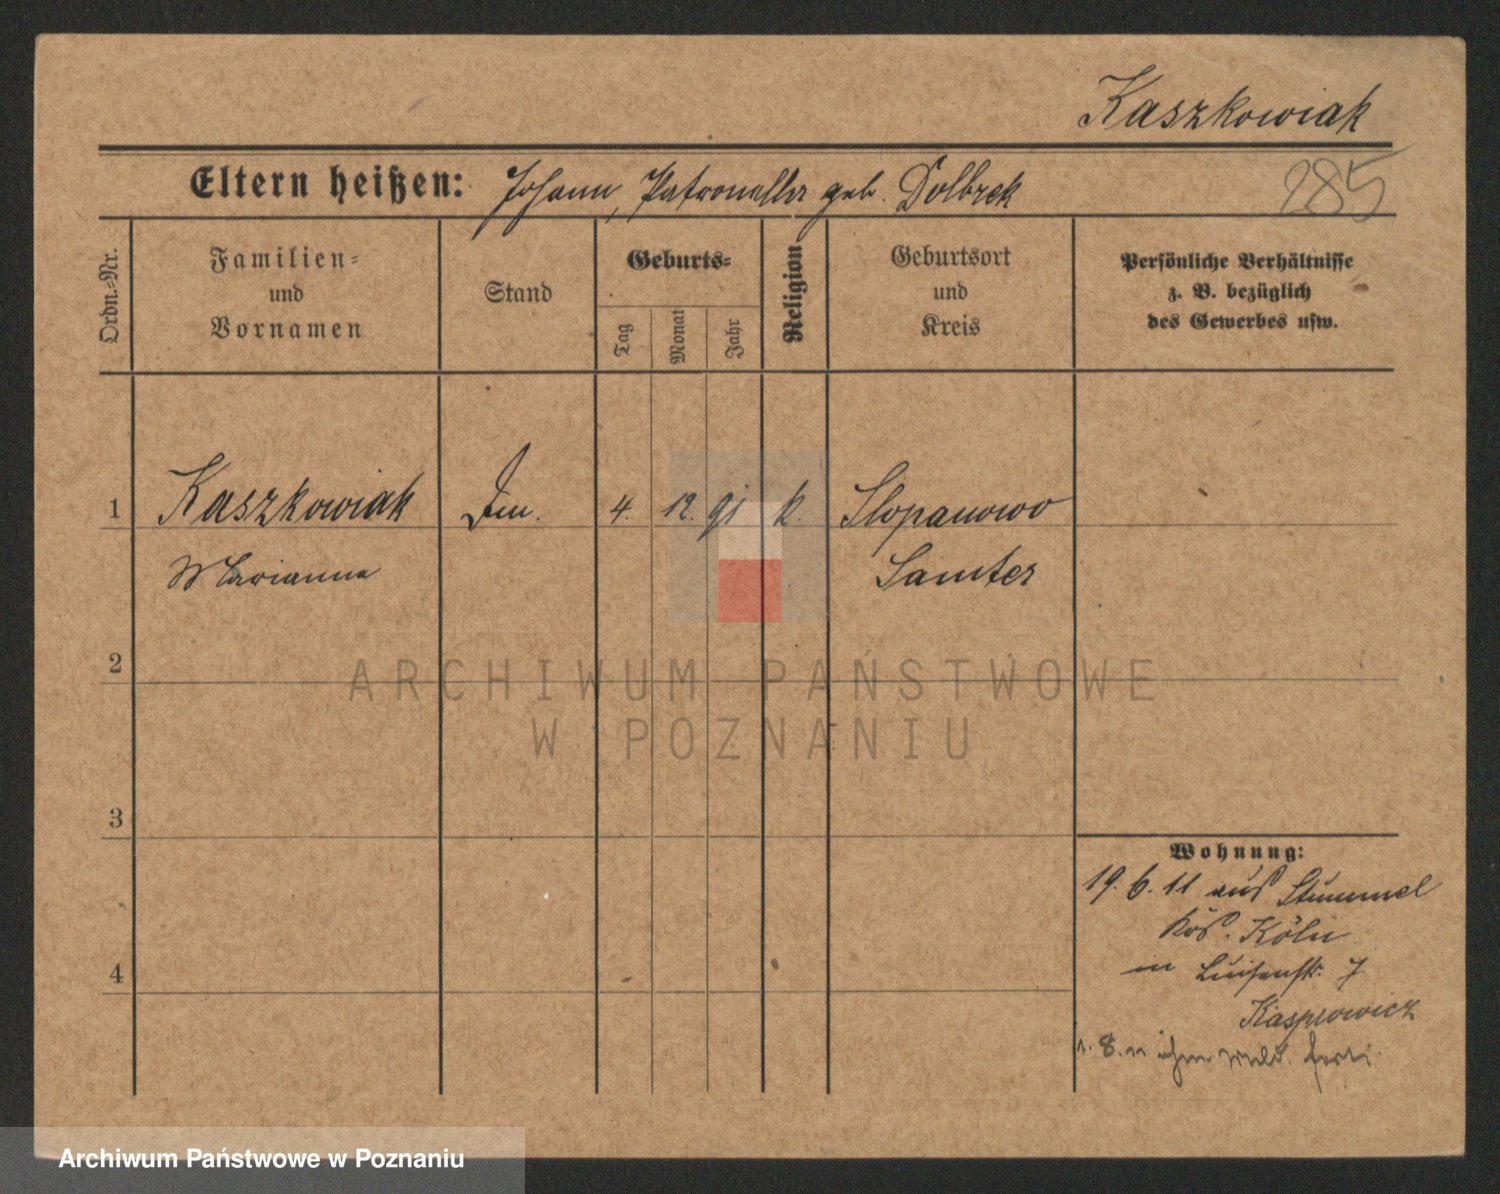 Kaszkowiak
Eltern heißen: Johann, Patronella geb. Dolbrek
285
Ordn.-Nr.
Familien- und Vornamen
Stand
Geburts-
Tag
Monat
Jahr
Religion
Geburtsort und Kreis
Persönliche Verhältnisse
z. B. bezüglich
des Gewerbes usw.
1 Kaszkowiak 4. 12. 91 k. Slopanowo
Marianna Samter
2
ARCHIWUM PAŃSTWOWE
W POZNANIU
3
Wohnung:
19. 6. 11 aus Stummel
Köln
4
in Luisenstr. 7
Kasprowicz
1. 8. 11 ohne Meld. fort.
Archiwum Państwowe w Poznaniu